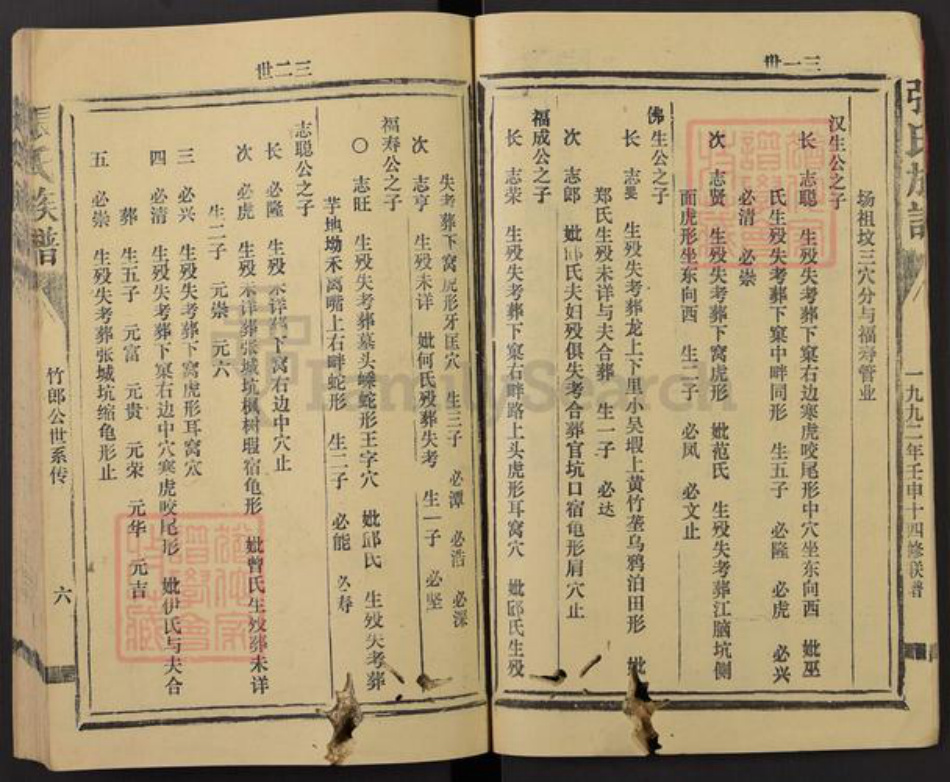 张氏族谱
一九九二年壬申十四修联谱
三一世
场祖坟三穴分与福寿管业
汉生公之子
长 志聪 生殁失考葬下窠右边寒虎咬尾形中穴坐东向西 妣巫
氏生殁失考葬下窠中畔同形 生五子 必隆 必虎 必兴
必清 必崇
次 志贤 生殁失考葬下窝虎形 妣范氏 生殁失考葬江脑坑侧
面虎形坐东向西 生二子 必凤 必文止
佛生公之子
长 志旻 生殁失考葬龙上下里小吴瑕上黄竹垄乌鸦泊田形 妣
郑氏生殁未详与夫合葬 生一子 必达
次 志郎 妣邱氏夫妇殁俱失考合葬官坑口宿龟形肩穴止
福成公之子
长 志荣 生殁失考葬下窠右畔路上头虎形耳窝穴 妣邱氏生殁
三二世
失考葬下窝虎形牙匡穴 生三子 必潭 必浩 必深
次 志亨 生殁未详 妣何氏殁葬失考 生一子 必坚
福寿公之子
〇 志旺 生殁失考葬墓头嵊蛇形王字穴 妣邱氏 生殁失考葬
芋地坳禾离嘴上右畔蛇形 生二子 必能 必寿
志聪公之子
长 必隆 生殁未详葬下窝右边中穴止
次 必虎 生殁未详葬张城坑枫树瑕宿龟形 妣曾氏生殁葬未详
生二子 元崇 元六
三 必兴 生殁失考葬下窝虎形耳窝穴
四 必清 生殁失考葬下窠右边中穴寒虎咬尾形 妣伊氏与夫合
葬 生五子 元富 元贵 元荣 元华 元吉
五 必崇 生殁失考葬张城坑缩龟形止
竹郎公世系传
六
张氏族谱
FamilySearch